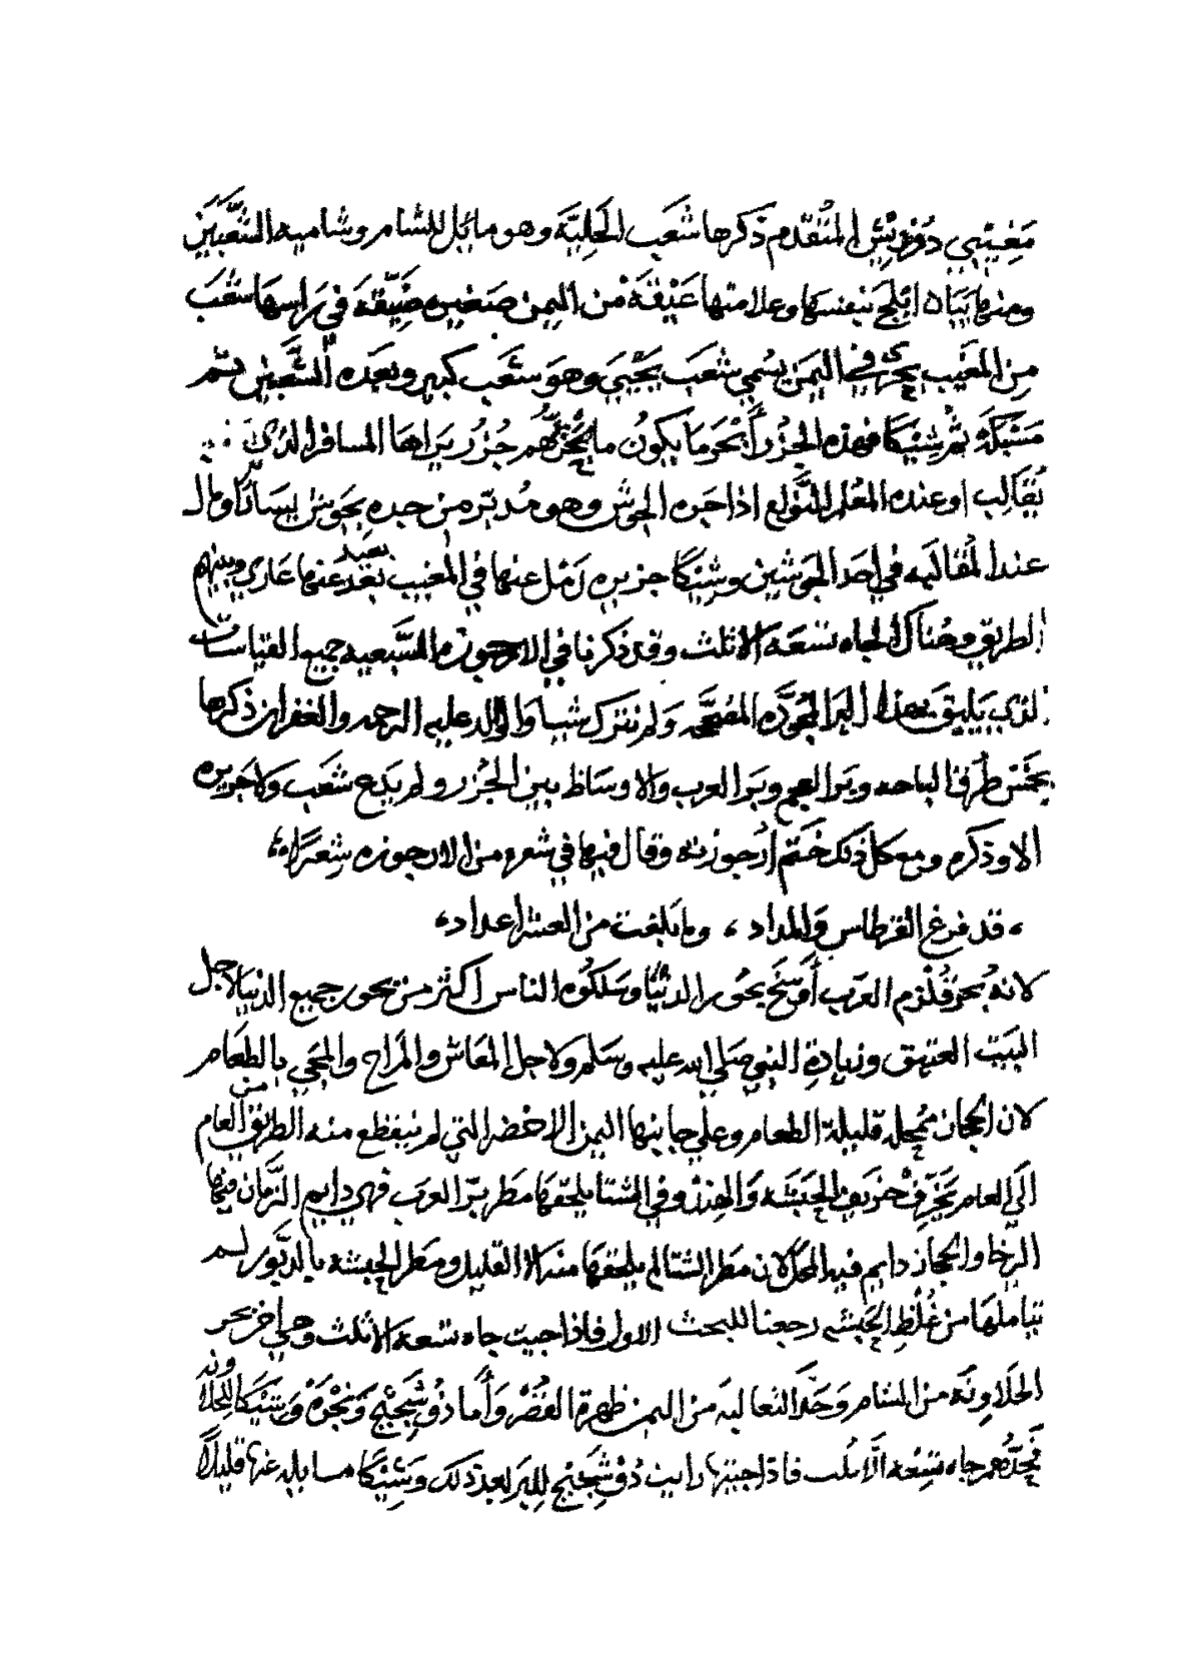 مَغِيْبِي دُوْمَرِيْش المتُقدم ذَكرها شَعَب الحَلبِيَّة وهو مائِل للشام وشاميه الشَّعَبَيْن
ومنها تَبَيان ابْلَج بنفسها وعلامتها عَنْيقَة مْن اليمن صَغيره ضَيَّقَه في رَاسها شَعْبَ
مِن المغَيب يجرى في اليمَن يسُمي شَعَب يَحْيَي وهَو شَعَب كبير وبَعَده الشَّعَبيْن ثم
مَسَنَدَ ثم شِينَكا فهذه الجزُر أَبحْرَ مَا يكَونُ ما يجُزيهُّم جُزُر يَراها المسافر الذي
يُقَالِب او عنده المعُلم المتَّولع اذا حَبره الجوش وهو مُدبّر من جبره بَجوش يَسَارًا ومال
عند المُقَالَبه في احَد الجَوشين وشِيَنكا جزيره رَمْل عنها في المغيب بعيد بَعُد عنها عَارِى وبينهم
الطريق وهُناكَ الجاه تسْعَه الا ثلث وقد ذكرنا في الارجوزه السَّبعيه جميع القياسات
الذي يَليق بهذا البر المجُوَّد المصَحَّحه وَلم نترك شيا وَالوالد عليه الرحمه والغفران ذكرها
يحَسن طَرفي الباحه وبرَ العجم وبَرَ العرب والاوسَاط بين الجُزر ولم يَدَع شَعَب وَلا جَزيره
الا وذكره ومع كل ذَلك خَتَم ارجُوزته وقال فيها في شعره من الارجوزه شِعرًا
قد فرغ القرطاس وَالمداد ، وما بَلغت من العشر اعداد
لانهُ بحر قُلْزم العَرَب أَوسَخ بحُور الدنْيَّا وسَلكُوه الناس اكثر من بحور جميع الدنيا لاجل
البَيت العتيق وزيادة النبي صَلي الله عليه وسَلم ولاجل المعَاش والمَراح والمجَي بالطعَام
لان الحجاز ممُحله قليلة الطعام وعلي جانبها اليمن الاخضر التي لم ينقطع منه الطريق من العام
الَى العام يَخَرِّفُ خريف الحَبَشَه وَالهند وفي الشتا يلحَقها مَطَر بَرّ العرَب فهي دايم الزَّمان فيها
الرخا والحجاز دايم فيه المحَل لان مَطر الشتا لم يلحقها منه الا القليل ومَطر الحَبشه بالدَبَّور لم
يتامَلهَا من غُلْظِ الحَبَشه رجعنا للبحث الاول فاذا جيت جاه تسَعه الا ثلث وهي اخر بحر
الحَلَاوِنَه من الشام وَحَدّ الثعالبة من اليمن ظهَرة القُصْر وَأَما ذُو شَجيْج وَبَحْرَهْ وَشِيَنكا للحلاونه
تحَدَّهُم جاه تسْعُه الَّا ثلث فاذا جيتها رايت ذُوْ شَجَيْج للبر بعد ذلك وَشِيْنكا مسايله عنها قليلًا